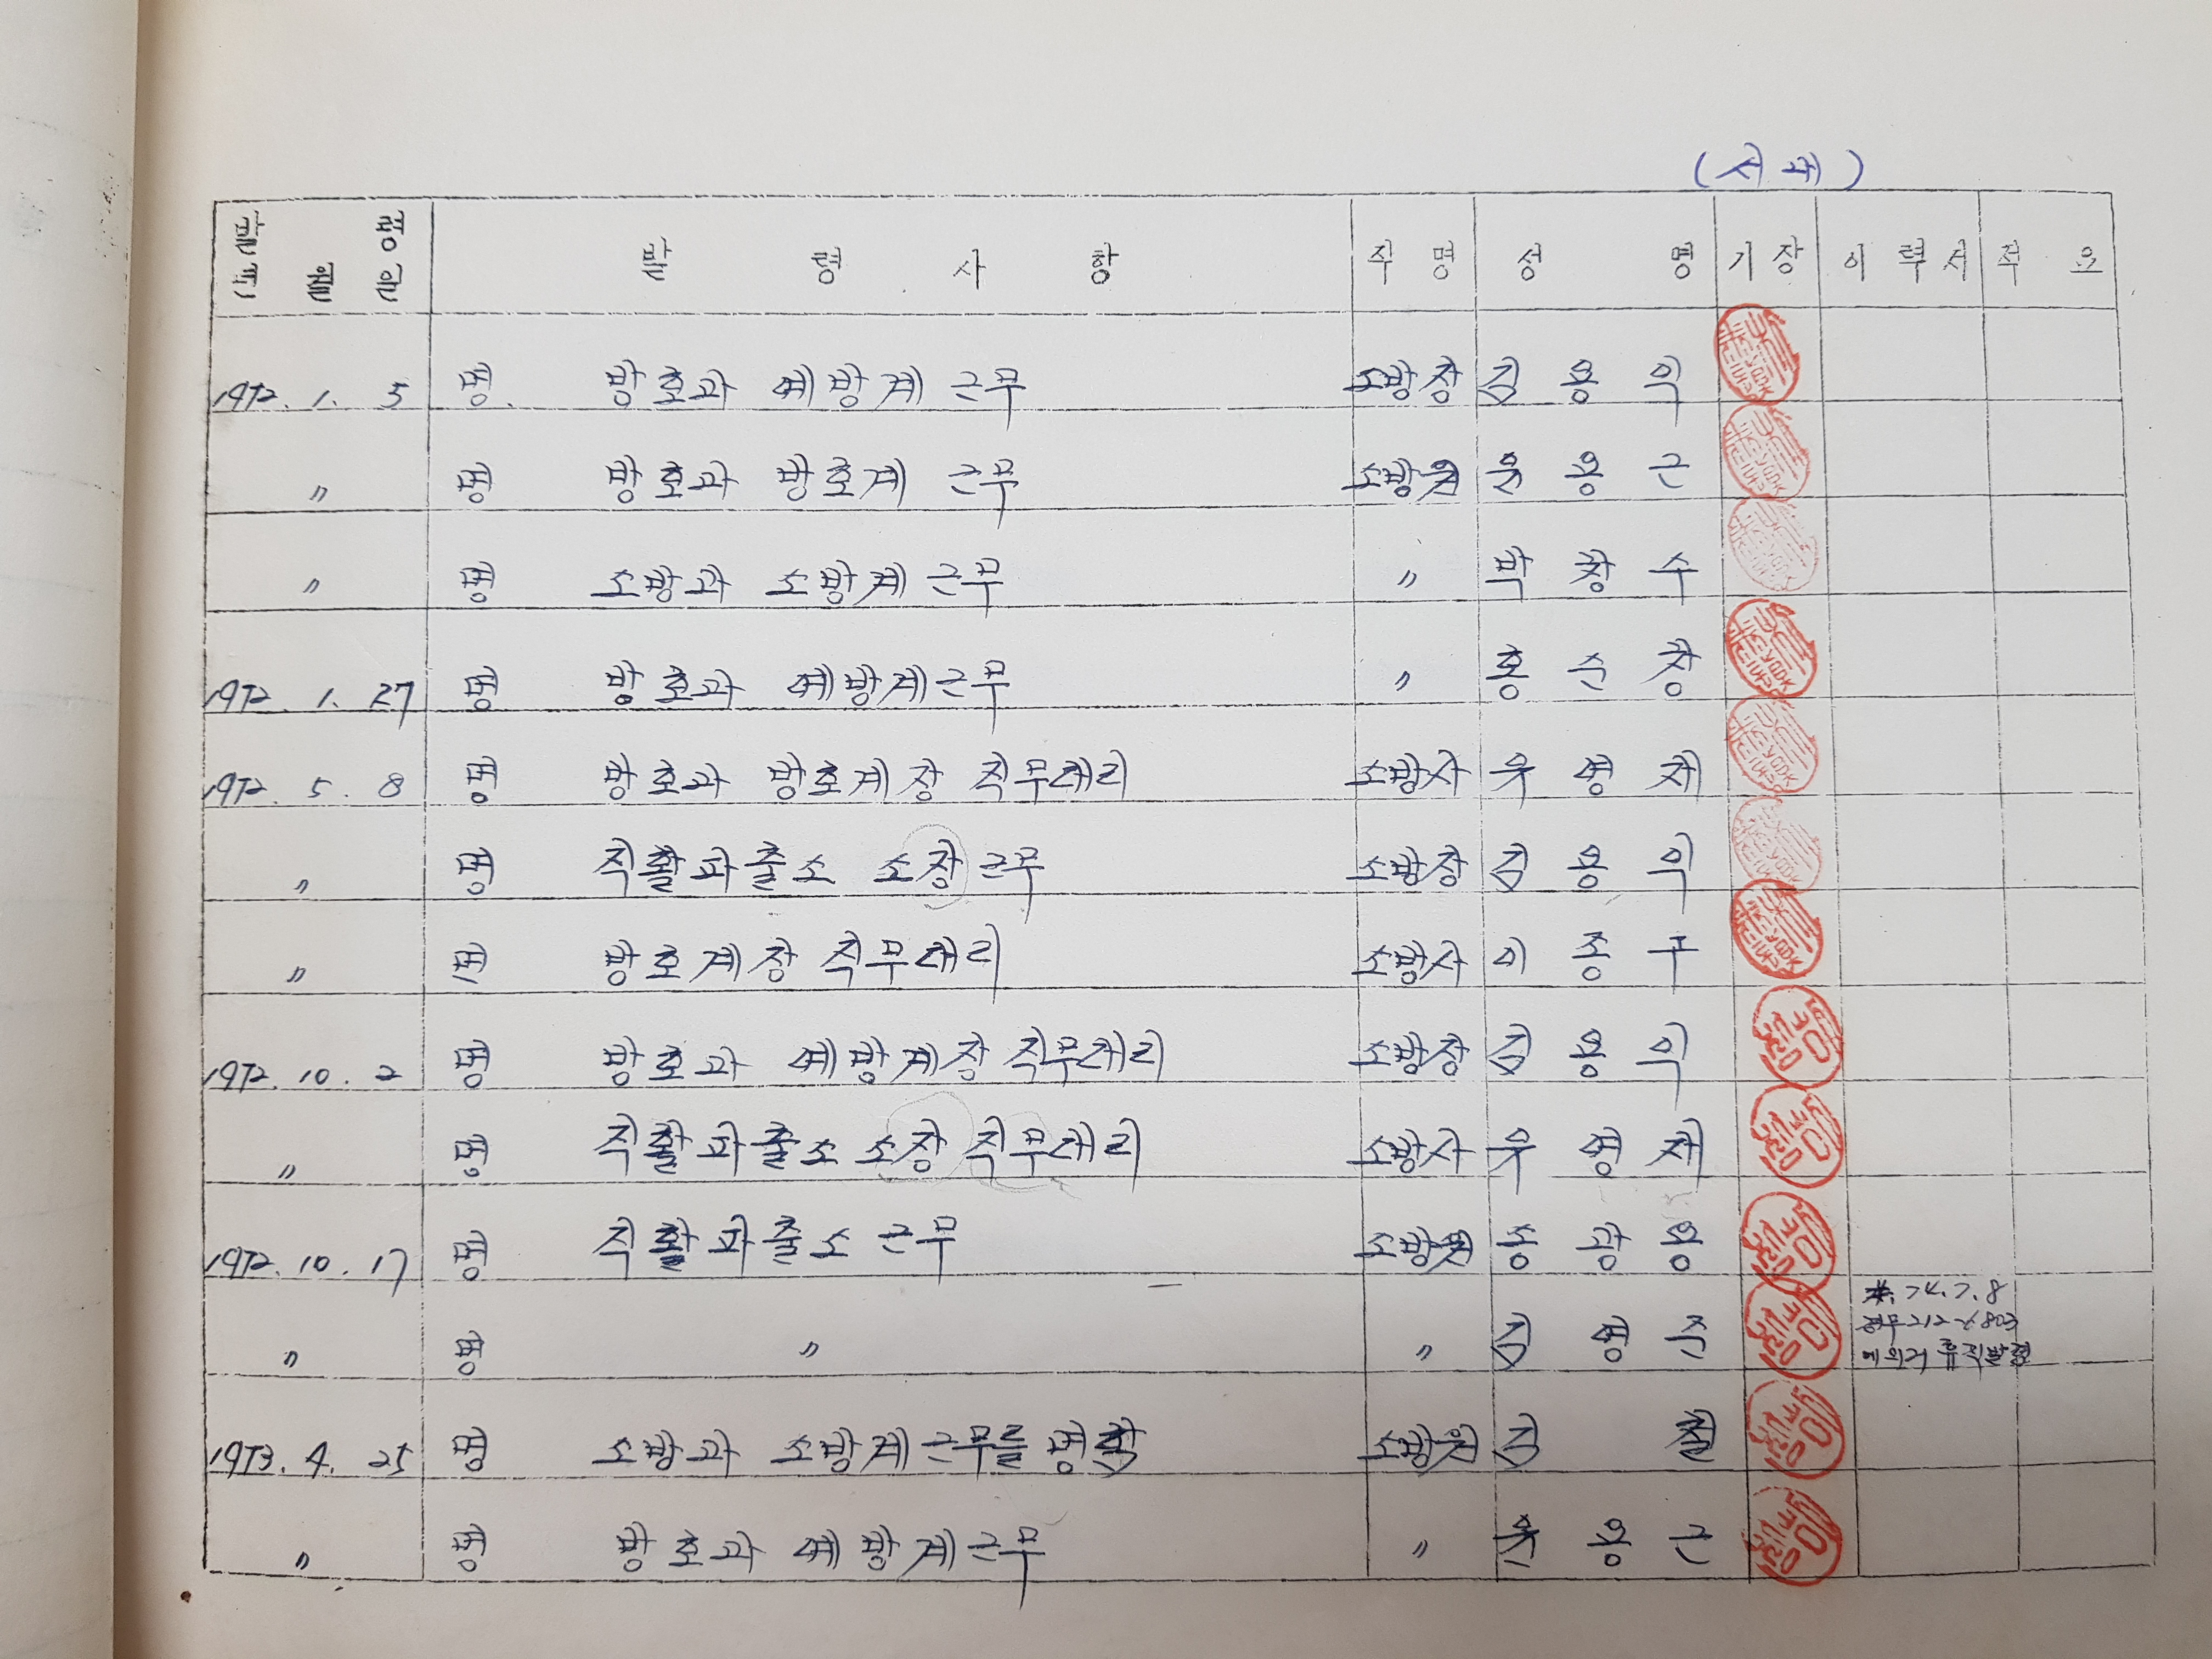 (서내)
발령 년월일 발령사항 직명 성명 기장 이력서 적요
1972. 1. 5 명. 방호과 예방계 근무 소방장 김용익
〃 명 방호과 방호계 근무 소방원 윤용근
〃 명 소방과 소방계 근무 〃 박창수
1972. 1. 27 명 방호과 예방계 근무 〃 홍순창
1972. 5. 8 명 방호과 방호계장 직무대리 소방사 우영재
〃 명 직할파출소 소장 근무 소방장 김용익
〃 면 방호계장 직무대리 소방사 이종구
1972. 10. 2 명 방호과 예방계장 직무대리 소방장 김용익
〃 명 직할파출소 소장 직무대리 소방사 우영재
1972. 10. 17 명 직할파출소 근무 소방원 송광용
〃 명 〃 〃 김영준 74. 7. 8
212-1803
에 의거 휴직발령
1973. 4. 25 명 소방과 소방계 근무를 명함 소방원 김철
〃 명 방호과 예방계 근무 〃 윤용근